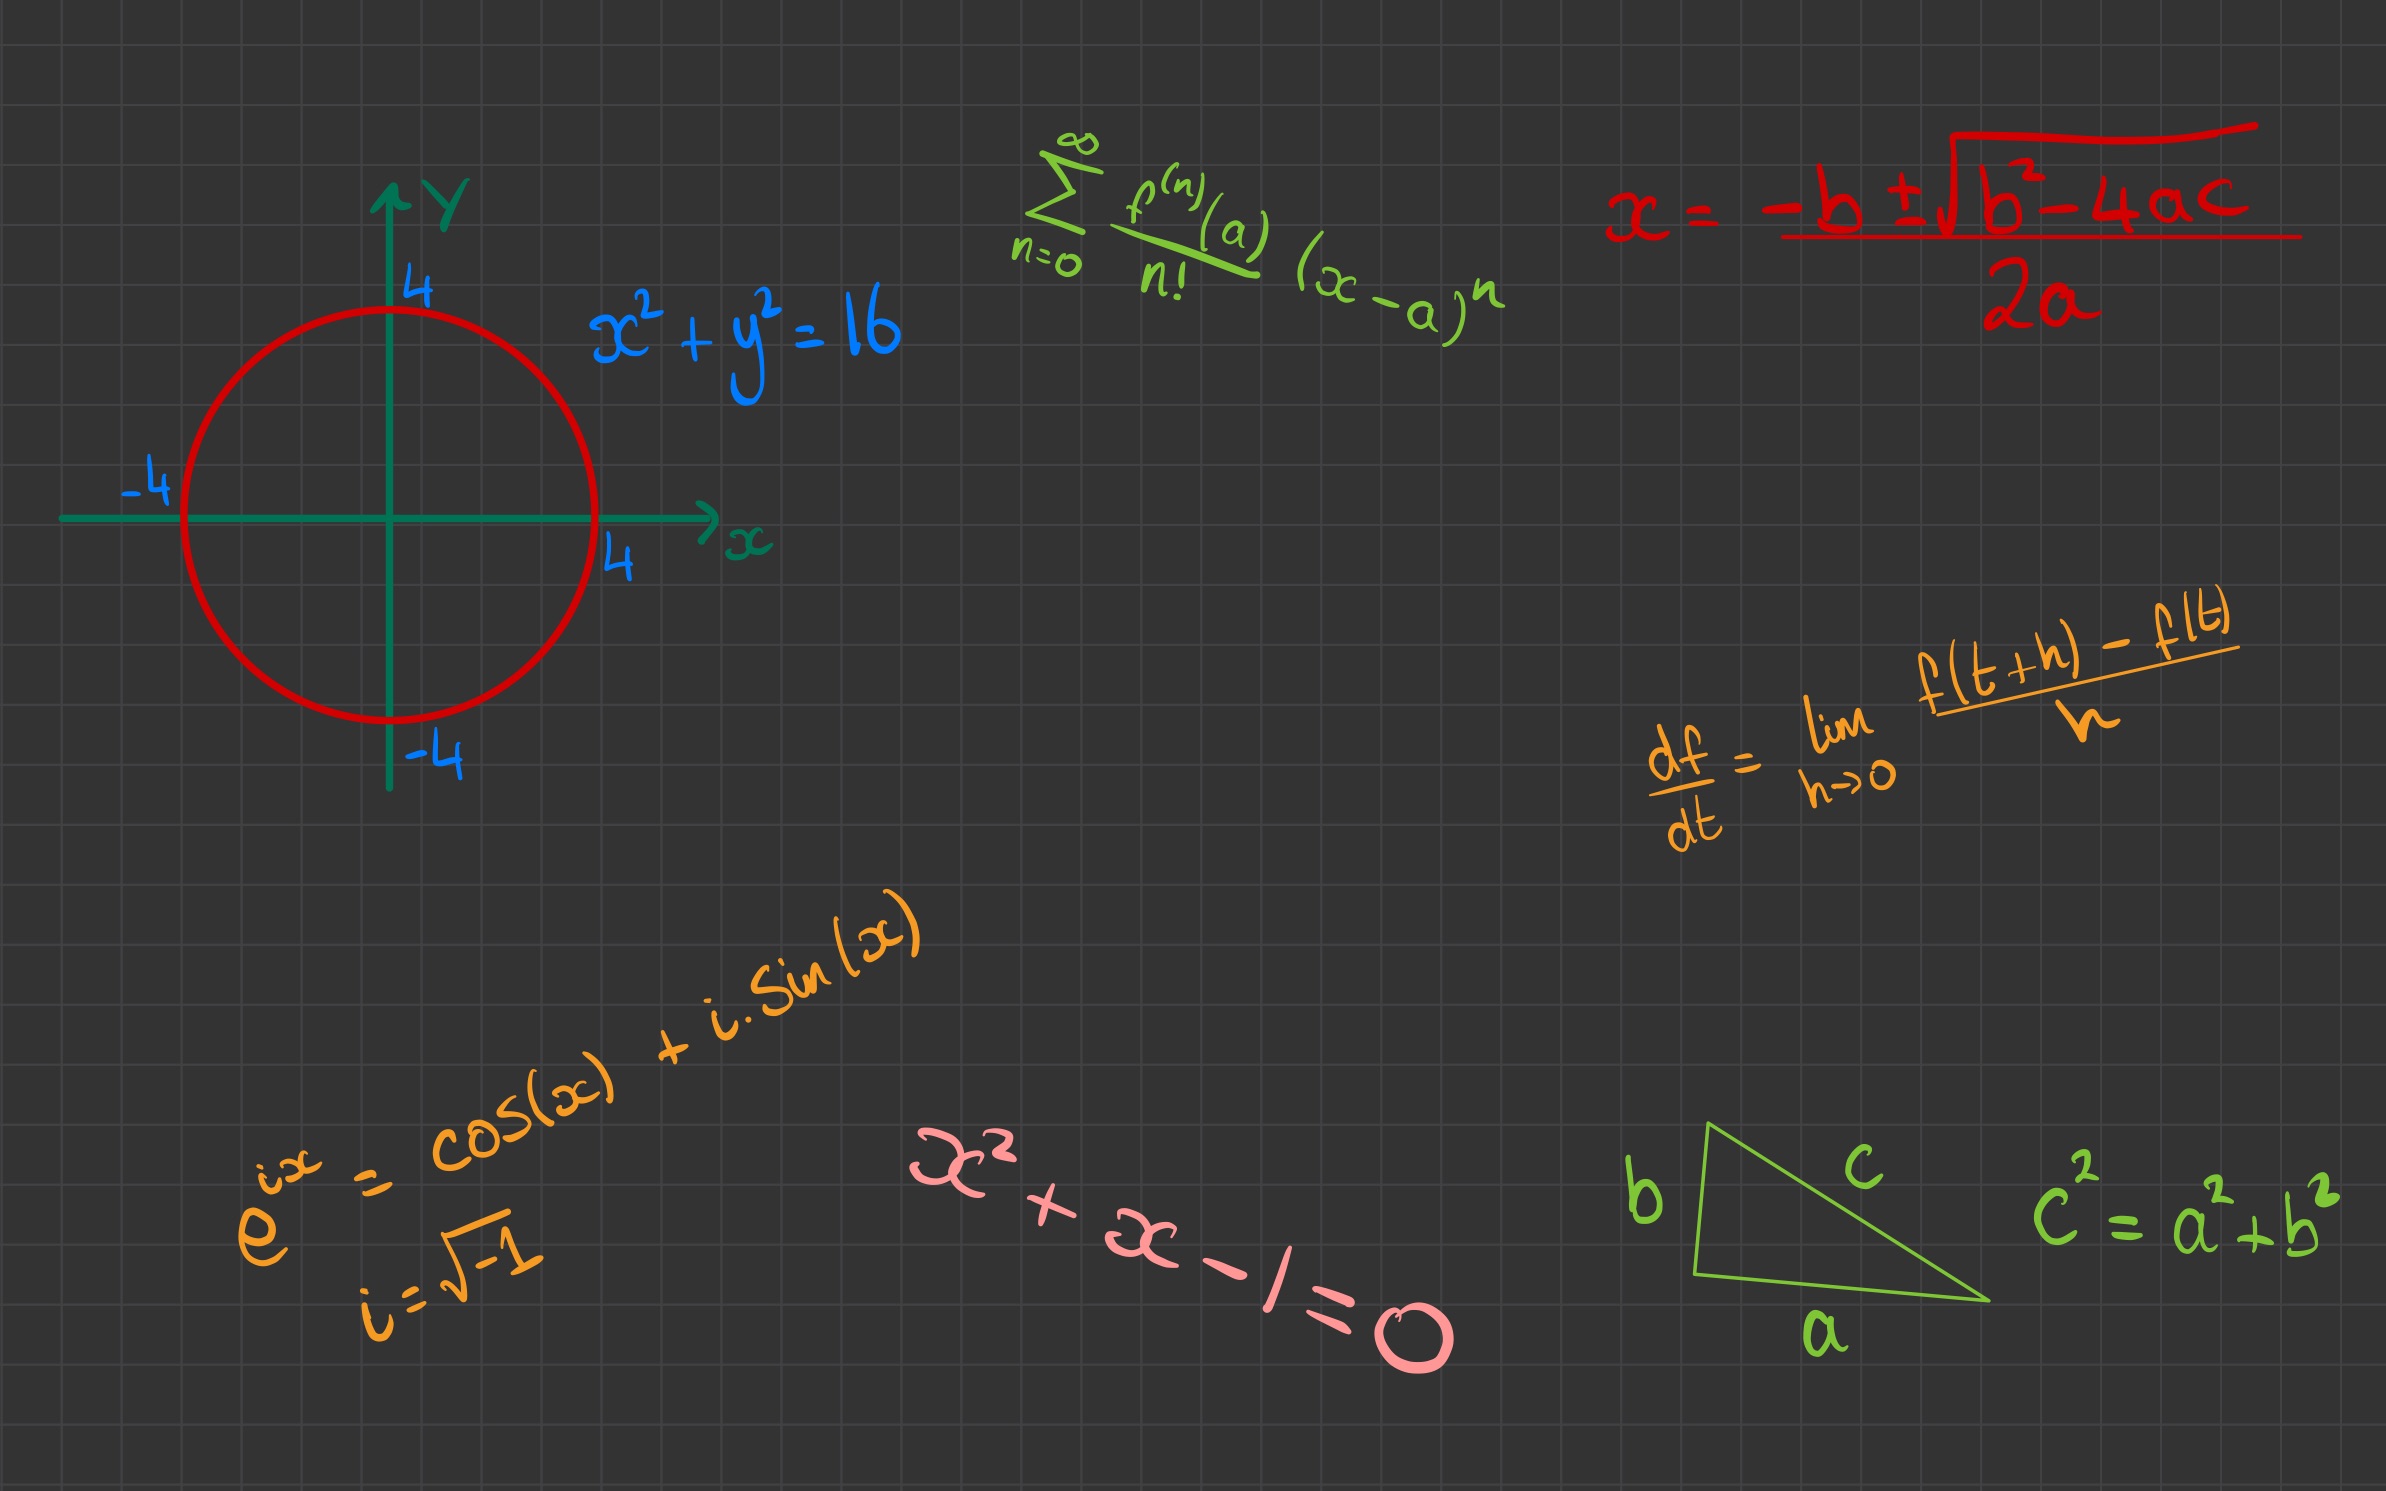 Y
4
x² + y² = 16
-4
x
4
-4
∞
∑ f⁽ⁿ⁾(a) / n! (x - a)ⁿ
n=0
x = -b ± √b² - 4ac / 2a
df/dt = lim f(t+h) - f(t) / h
h→0
eⁱˣ = cos(x) + i.sin(x)
i = √-1
x² + x - 1 = 0
b
c
a
c² = a² + b²